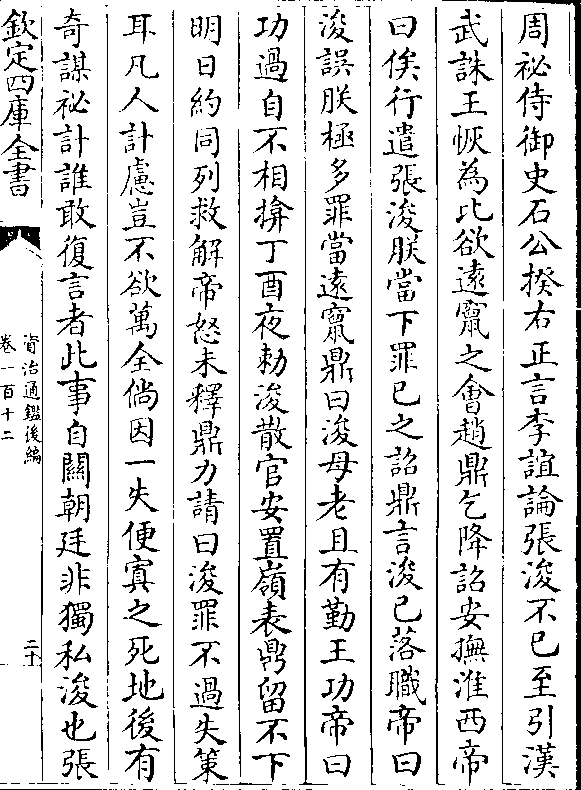 周祕侍御史石公揆右正言李誼論張浚不已至引漢
武誅王恢為比欲遠竄之會趙鼎乞降詔安撫淮西帝
曰俟行遣張浚朕當下罪已之詔鼎言浚已落職帝曰
浚誤朕極多罪當遠竄鼎曰浚母老且有勤王功帝曰
功過自不相揜丁酉夜勅浚散官安置嶺表鼎留不下
明日約同列救解帝怒未釋鼎力請曰浚罪不過失策
耳凡人計慮豈不欲萬全倘因一失便寘之死地後有
奇謀祕計誰敢復言者此事自關朝廷非獨私浚也張
欽定四庫全書
資治通鑑後編
卷一百十二
二十